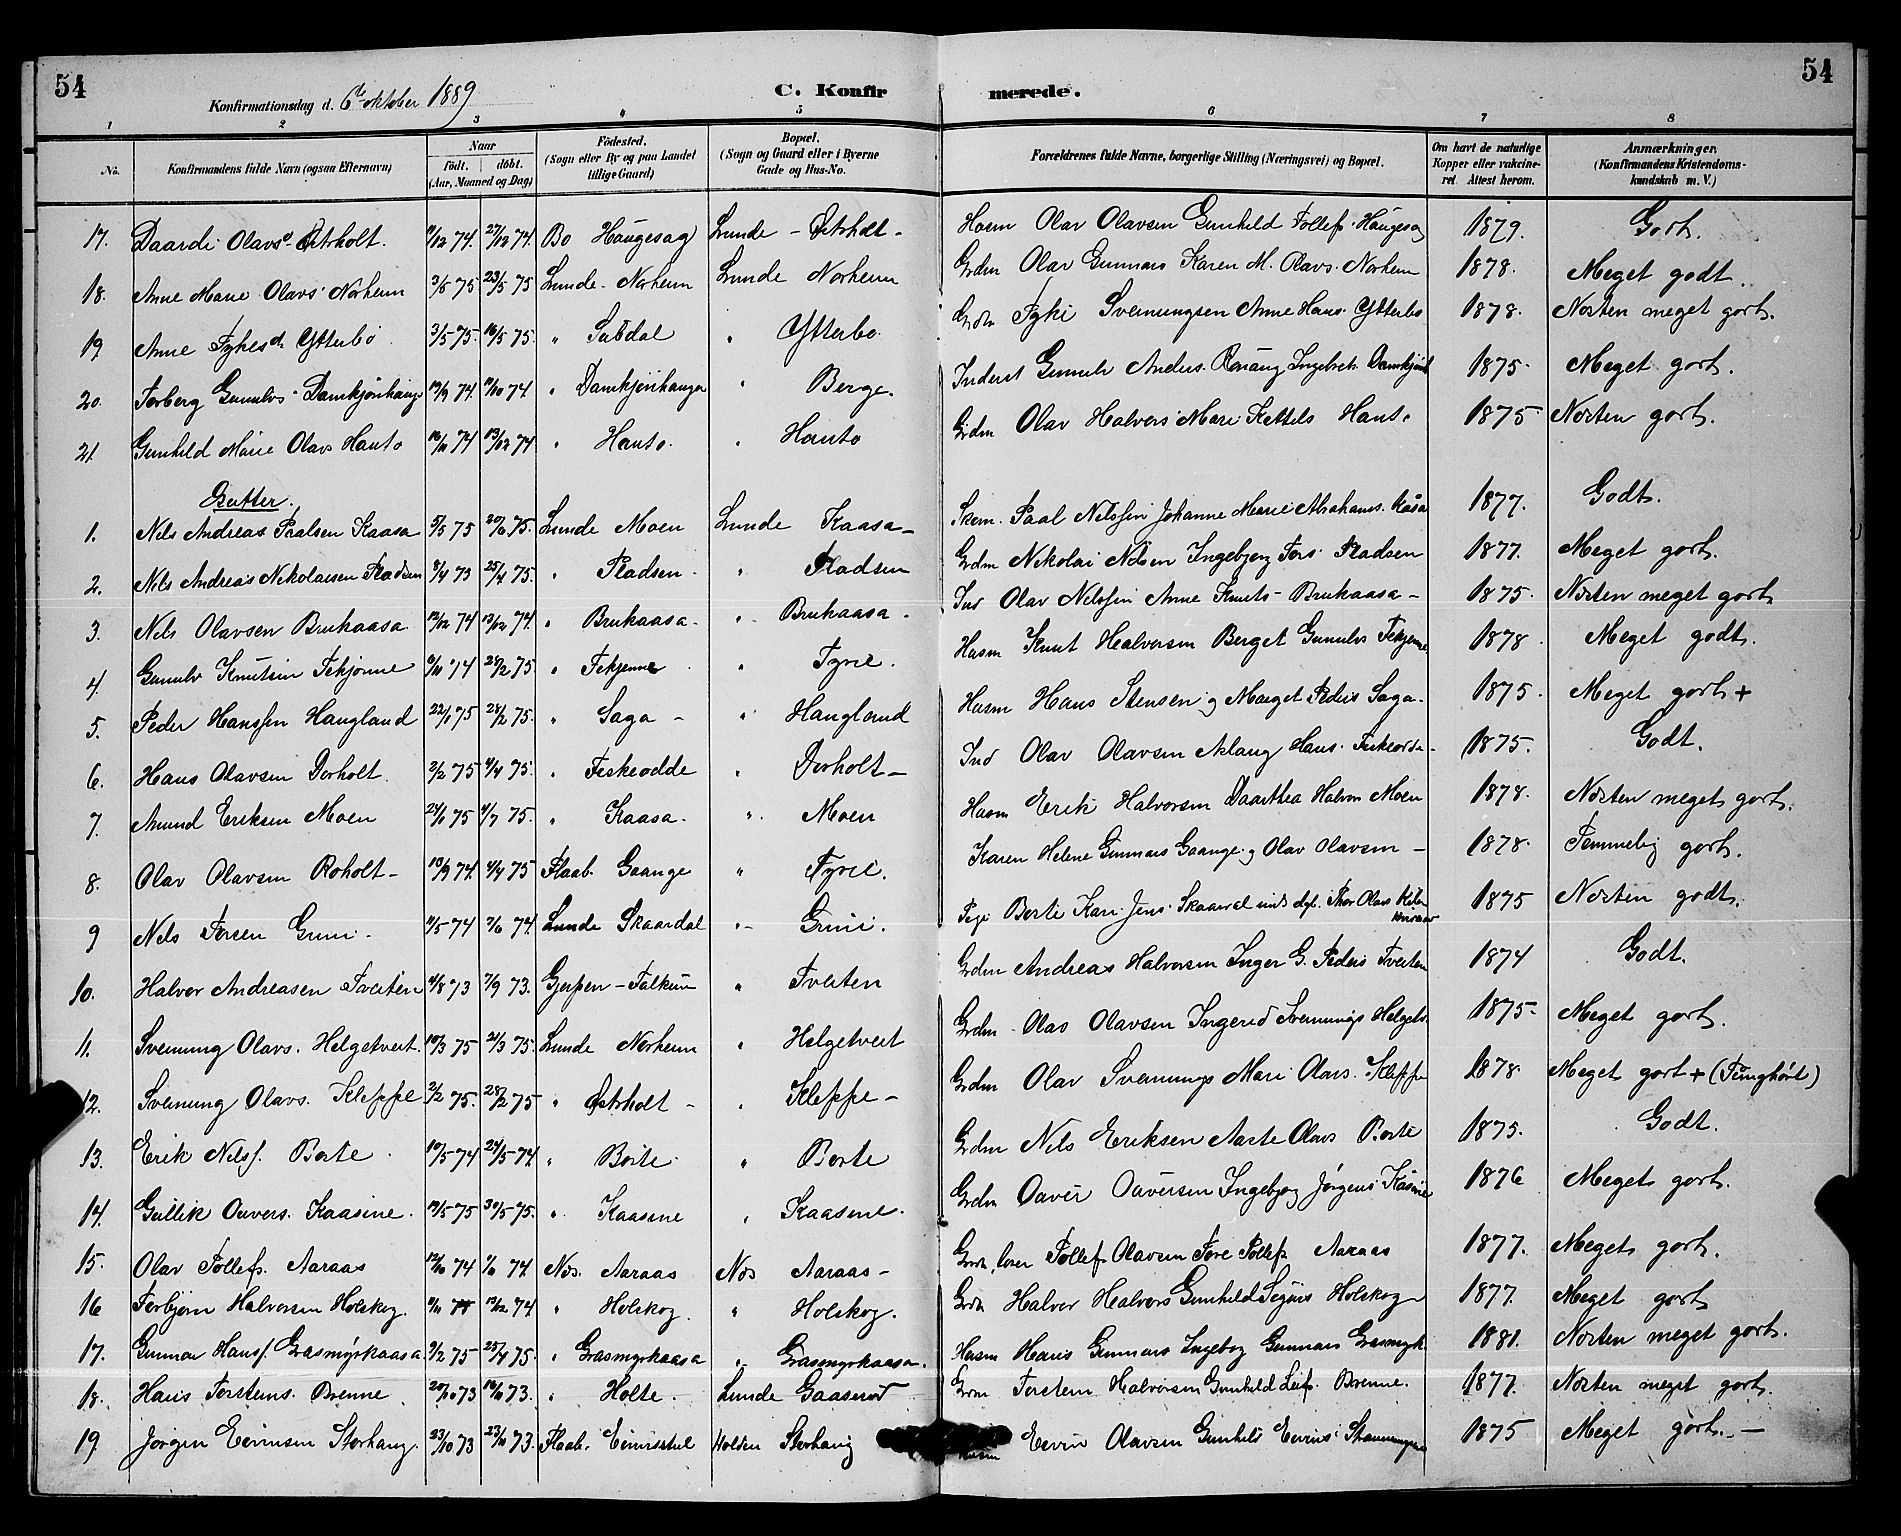 54
54
Konfirmationsdag d. 6te oktober 1889
C. Konfirmerede.
1 2 3 4 5 6 7 8
No. Konfirmandens fulde Navn (ogsaa Efternavn) Naar født. døbt. (Aar, Maaned og Dag) Fødested. (Sogn eller By og paa Landet tillige Gaard) Bopæl. (Sogn og Gaard eller i Byerne Gade og Hus-No. Forældrenes fulde Navne, borgerlige Stilling (Næringsvei) og Bopæl. Om havt de naturlige Kopper eller vakcineret. Attest herom. Anmærkninger. (Konfirmandens Kristendomskundskab m. V.)
17. Daardi Olavsd Østrholt. 11/12 74. 27/12 74. Bø Haugesag Lunde - Østrholt - Husm Olav Olavsen Gunhild Tollefs. Haugesag 1879. Godt.
18. Anne Marie Olavs Norheim 3/5 75 23/5 75 Lunde - Norheim Lunde Norheim Grdm Olav Gunnars Karen M. Olavs. Norheim 1878. Meget godt.
19 Anne Tykesdr Ytterbø 3/5 75. 16/5 75. " " Ytterbø Grdm Tyki Svenungsen Anne Hans. Ytterbø 1878. Næsten meget godt.
20. Torberg Gunulvs Damkjønhaug 74. 74. " Damkjønhaugen " Berge. Inderst Gunulv Anders. Ingebret. 1875. Meget godt.
21. Gunhild Marie Olavs Hauto 74 13/12 74 " Hauto. " Hauto Grdm Olav Halvors Mari Kettels Hauto 1875 Næsten godt.
Gutter.
1. Nils Andreas Paalsen Kaasa 5/5 75 20/6 75. Lunde Moen Lunde Kaasa - Skom. Paal Nilssen Johanne Marie Abrahams. Kåsa 1877. Godt.
2. Nils Andreas Nikolaisen Pladsen 75 25/4 75. " Pladsen. " Pladsen Grdm Nikolai Nilsen Ingebjørg Tors. Pladsen 1877. Meget godt.
3. Nils Olavsen Brukaasa 12/12 74 74. " Brukaasa. " Brukaasa. Ind Olav Nilssen Anne Knuts - Brukaasa - 1875. Næsten meget godt
4. Gunulv Knutsen Tekjønne 74 28/2 75. " Tekjenne " Tyrie. Husm Knut Halvorsen Berget Gunulvs Tekjenne 1878 Meget godt.
5. Peder Hanssen Haugland 22/1 75 28/2 75. " Saga - " Haugland Husm Hans Stensen og Marget Peders Saga. 1875. Meget godt +
6. Hans Olavsen Dorholt. 2/2 75 4/4 75. " Feskeodde " Dorholt - Ind Olav Olavsen Aslaug Hans. 1875. Godt.
7. Amund Eriksen Moen 75 4/7 75. " Kaasa. " Moen Husm Erik Halvorsen Daarthea Halvors Moen 1878. Næsten meget godt.
8. Olav Olavsen Roholt - 10/9 74. 4/4 75 Flaab. Gaange " Tyrie. Karen Helene Gunnars Gaange og Olav Olavsen - 1878. Temmelig godt.
9 Nils Toresen Grini. 74 74. Lunde Skaardal " Grini. Pige Berte Kari Jens. Skaardal Thor Olavs 1875 Næsten godt.
10. Halvor Andreasen Tveiten 4/8 73 7/9 73. Gjerpen - Falkum " Tveiten Grdm Andreas Halvorsen Inger G. Peders Tveiten 1874 Godt.
11. Svenung Olavs. Helgetveit. 10/3 75 21/3 75. Lunde Norheim " Helgetveit Grdm Olav Olavsen Ingerid Svennungs Helgetv. 1875. Meget godt.
12. Svenung Olavs. Kleppe 2/2 75. 28/2 75 " Østrholt - " Kleppe - Grdm Olav Svenungs Mari Olavs. Kleppe 1878. Meget godt + (Tunghørt)
13. Erik Nilss. Børte. 10/5 74 24/5 74. " Børte " Børte Grdm Nils Eriksen Aarte Olavs Børte 1875. Godt.
14. Gullik Oavers. Kaasine. 75 30/5 75. " Kaasine " Kaasine. Grdm Oaver Oaversen Ingebjørg Jørgens Kåsine 1876 Meget godt.
15. Olav Tollefs. Aaraas 74 74. Næs. Aaraas Næs Aaraas - Tollef Olavsen Tore Tollefs Aaraas 1877. Meget godt.
16 Torbjørn Halvorsen Holskog. 74 13/12 74 " Holskog. " Holskog. Grdm Halvor Halvors Gunhild Holskog 1877. Meget godt
17. Gunnar Hanss. Græsmyrkaasa 9/2 75 25/4 75. " Græsmyrkaasa " Græsmyrkaasa. Husm Hans Gunnars Ingeborg Gunnars Græsmyrk. 1881. Næsten meget godt.
18. Hans Torstens. Brenne 73 73. " Holte. Lunde Gaaserød Grdm Torstein Halvorsen Gunhild Leifs. Brenne. 1877. Næsten meget godt.
19 Jørgen Eivinsen Storhaug. 23/10 73 73. Flaab. Holden Storhaug Husm Eivin Olavsen Gunhild Eivins 1875 Meget godt. -